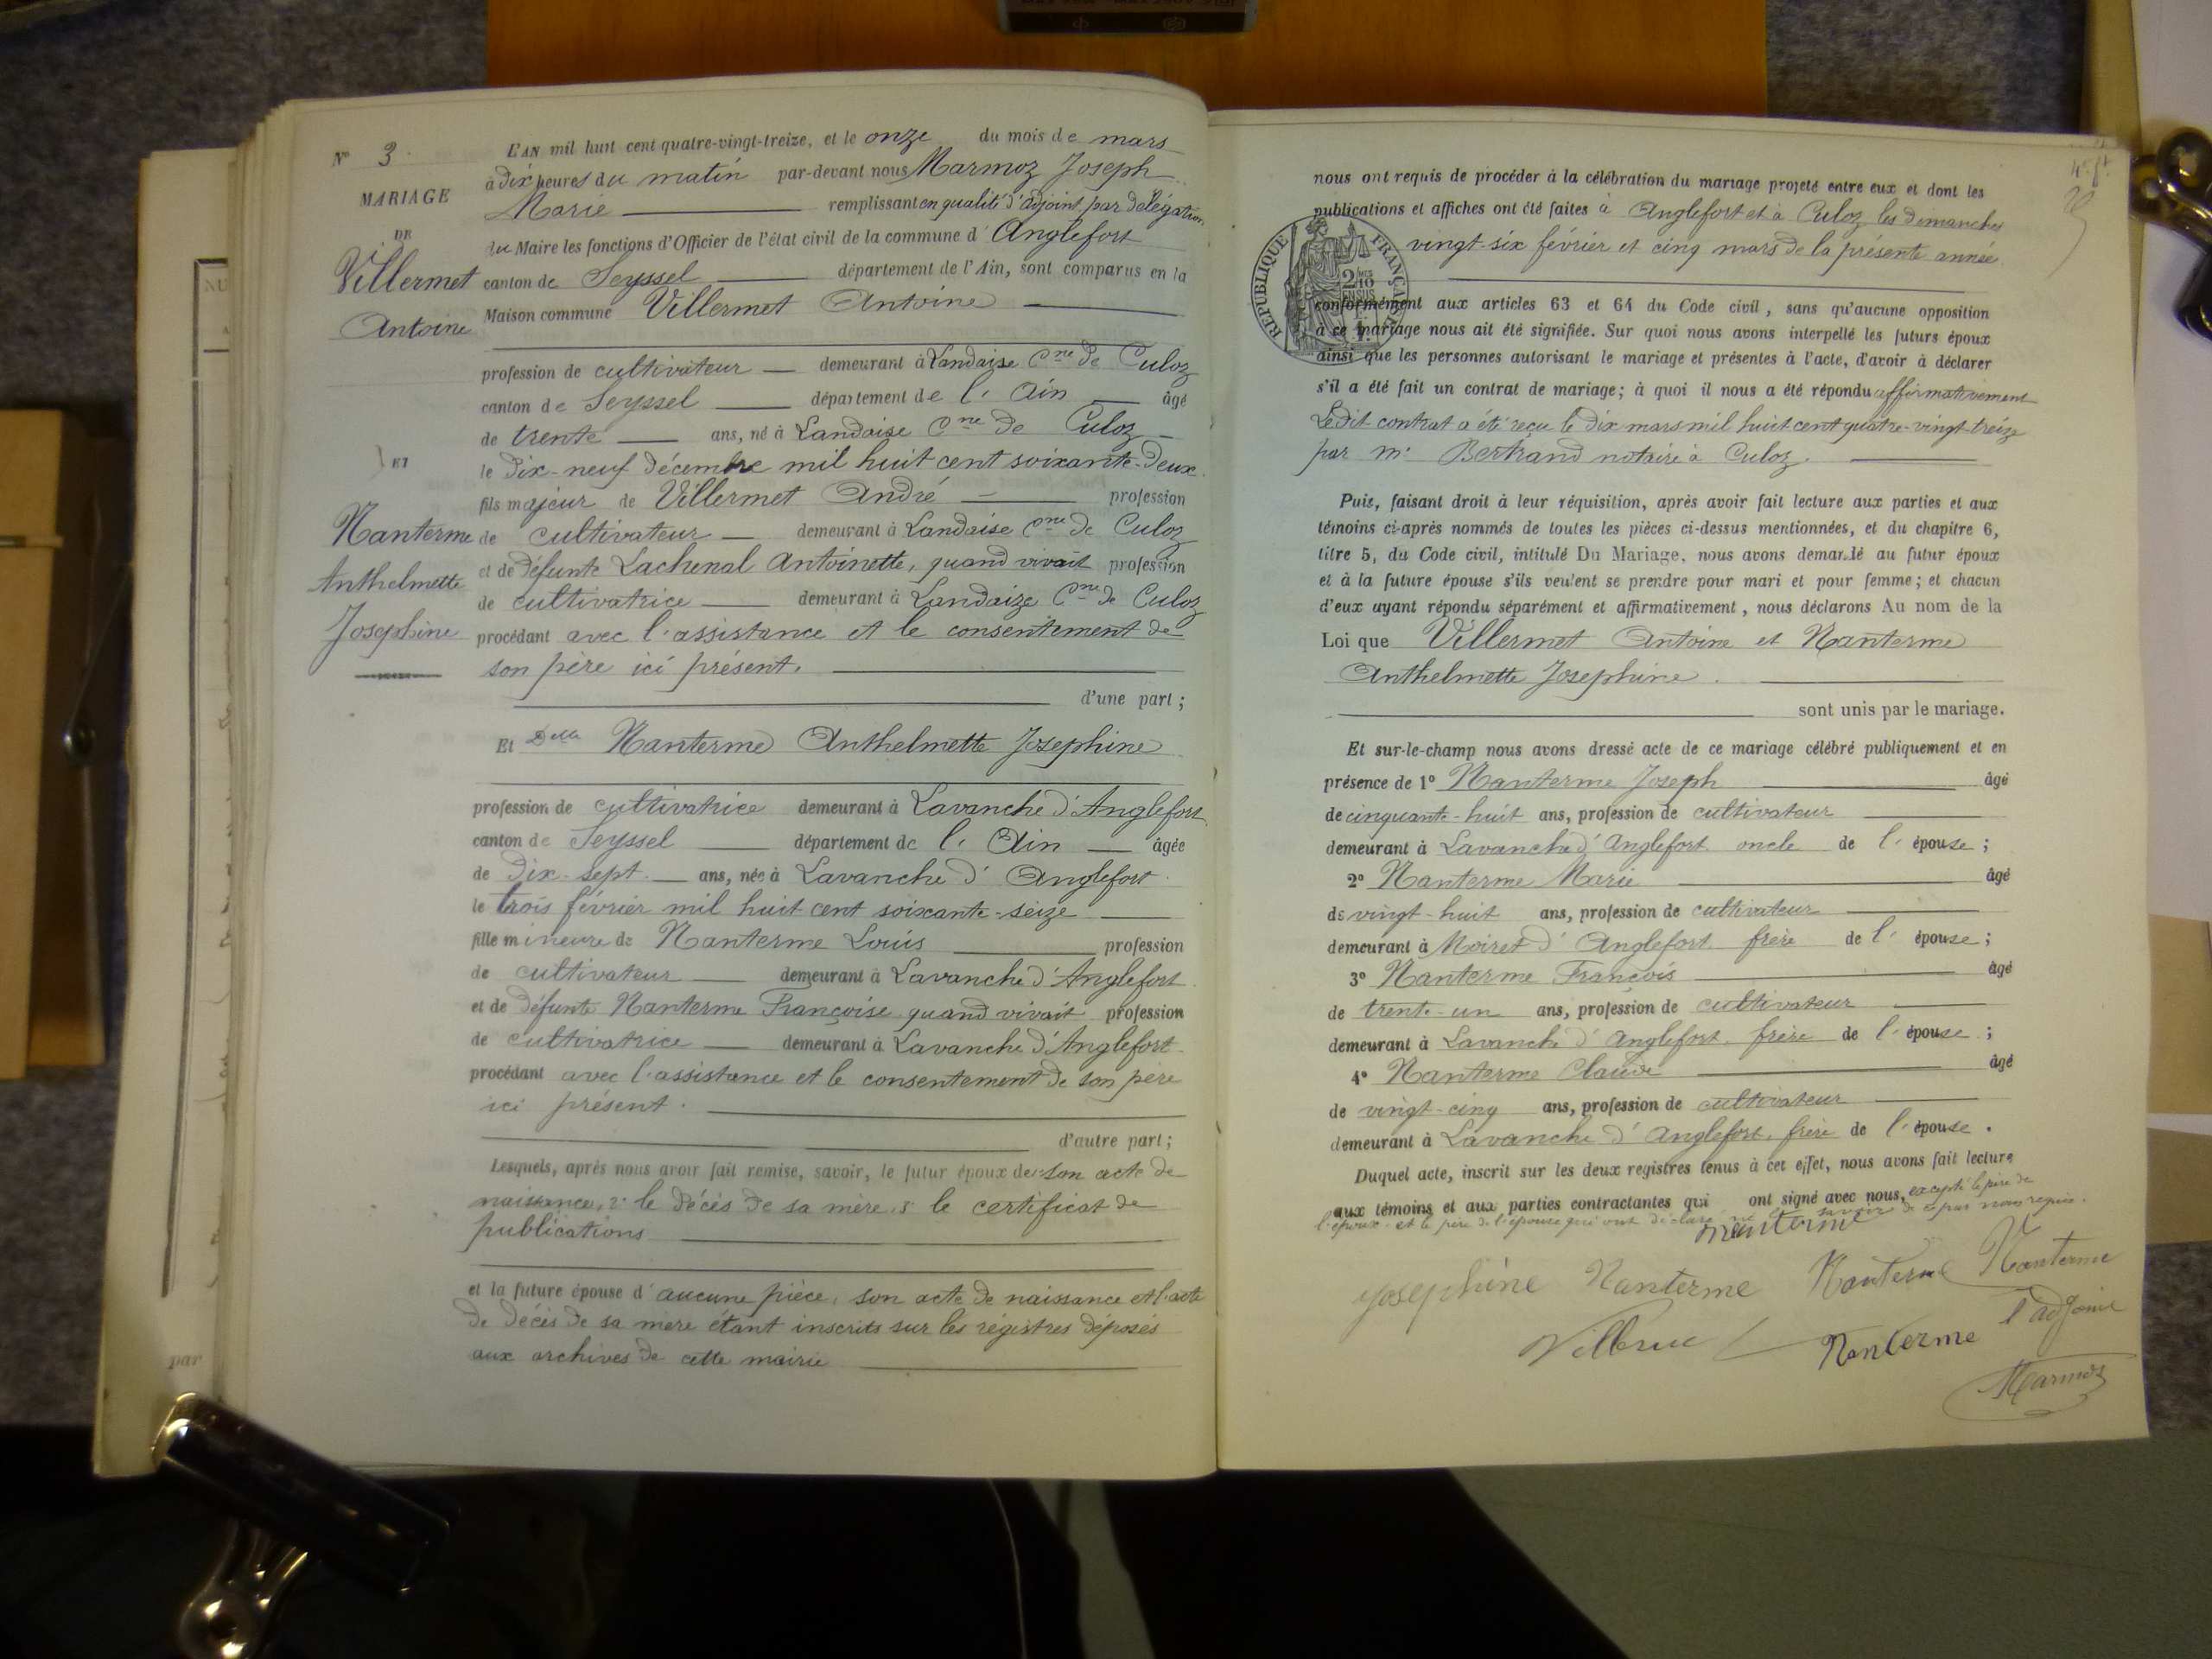 N° 3
MARIAGE
DE
Villermet
Antoine
ET
Nanterme
Anthelmette
Josephine
L'AN mil huit cent quatre-vingt-treize, et le onze du mois de mars
à dix heures du matin par-devant nous Marmoz Joseph
Marie remplissant en qualité d'adjoint par délégation
du Maire les fonctions d'Officier de l'état civil de la commune d' Anglefort
canton de Seyssel département de l'Ain, sont comparus en la
Maison commune Villermet Antoine
profession de cultivateur demeurant à Landaise Cne de Culoz
canton de Seyssel département de l'Ain âgé
de trente ans, né à Landaise Cne de Culoz
le dix-neuf décembre mil huit cent soixante-deux
fils majeur de Villermet André profession
de cultivateur demeurant à Landaise Cne de Culoz
et de défunte Lachenal Antoinette, quand vivait profession
de cultivatrice demeurant à Landaize Cne de Culoz
procédant avec l'assistance et le consentement de
son père ici présent.
d'une part ;
Et Delle Nanterme Anthelmette Josephine
profession de cultivatrice demeurant à Lavanche d'Anglefort
canton de Seyssel département de l'Ain âgée
de dix-sept ans, née à Lavanche d'Anglefort
le trois février mil huit cent soixante-seize
fille mineure de Nanterme Louis profession
de cultivateur demeurant à Lavanche d'Anglefort
et de défunte Nanterme Françoise quand vivait profession
de cultivatrice demeurant à Lavanche d'Anglefort
procédant avec l'assistance et le consentement de son père
ici présent.
d'autre part ;
Lesquels, après nous avoir fait remise, savoir, le futur époux de 1° son acte de
naissance, 2° le décès de sa mère, 3° le certificat de
publications
et la future épouse d'aucune pièce, son acte de naissance et l'acte
de décès de sa mère étant inscrits sur les régistres déposés
aux archives de cette mairie
par
nous ont requis de procéder à la célébration du mariage projeté entre eux et dont les
publications et affiches ont été faites à Anglefort et à Culoz les dimanches
vingt-six février et cinq mars de la présente année
RÉPUBLIQUE FRANÇAISE
conformément aux articles 63 et 64 du Code civil, sans qu'aucune opposition
à ce mariage nous ait été signifiée. Sur quoi nous avons interpellé les futurs époux
ainsi que les personnes autorisant le mariage et présentes à l'acte, d'avoir à déclarer
s'il a été fait un contrat de mariage ; à quoi il nous a été répondu affirmativement
Ledit contrat a été reçu le dix mars mil huit cent quatre-vingt-treize
par Me Bertrand notaire à Culoz.
Puis, faisant droit à leur réquisition, après avoir fait lecture aux parties et aux
témoins ci-après nommés de toutes les pièces ci-dessus mentionnées, et du chapitre 6,
titre 5, du Code civil, intitulé Du Mariage, nous avons demandé au futur époux
et à la future épouse s'ils veulent se prendre pour mari et pour femme ; et chacun
d'eux ayant répondu séparément et affirmativement, nous déclarons Au nom de la
Loi que Villermet Antoine et Nanterme
Anthelmette Josephine.
sont unis par le mariage.
Et sur-le-champ nous avons dressé acte de ce mariage célébré publiquement et en
présence de 1° Nanterme Joseph âgé
de cinquante-huit ans, profession de cultivateur
demeurant à Lavanche d'Anglefort oncle de l'épouse ;
2° Nanterme Marie âgé
de vingt-huit ans, profession de cultivateur
demeurant à Moiret d'Anglefort frère de l'épouse ;
3° Nanterme François âgé
de trente-un ans, profession de cultivateur
demeurant à Lavanche d'Anglefort frère de l'épouse ;
4° Nanterme Claude âgé
de vingt-cinq ans, profession de cultivateur
demeurant à Lavanche d'Anglefort, frère de l'épouse.
Duquel acte, inscrit sur les deux registres tenus à cet effet, nous avons fait lecture
aux témoins et aux parties contractantes qui ont signé avec nous, excepté le père de
l'époux et le père de l'épouse qui ont déclaré ne savoir de ce par nous requis.
nanterme
josephine Nanterme Nanterme Nanterme
l'adjoint
Nanterme
Marmoz